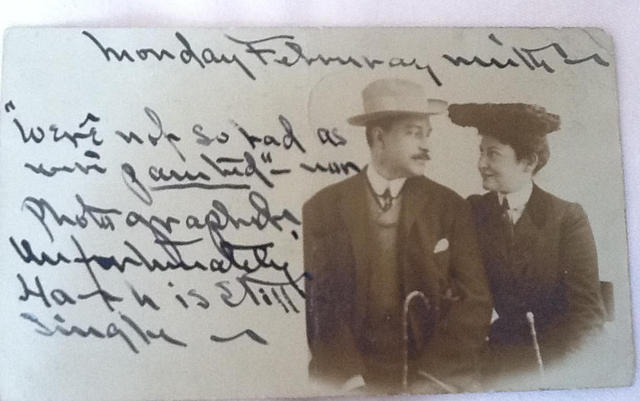 Monday February ninth
"We're not so bad as
we're painted" - nor
photographed.
Unfortunately,
is still
single